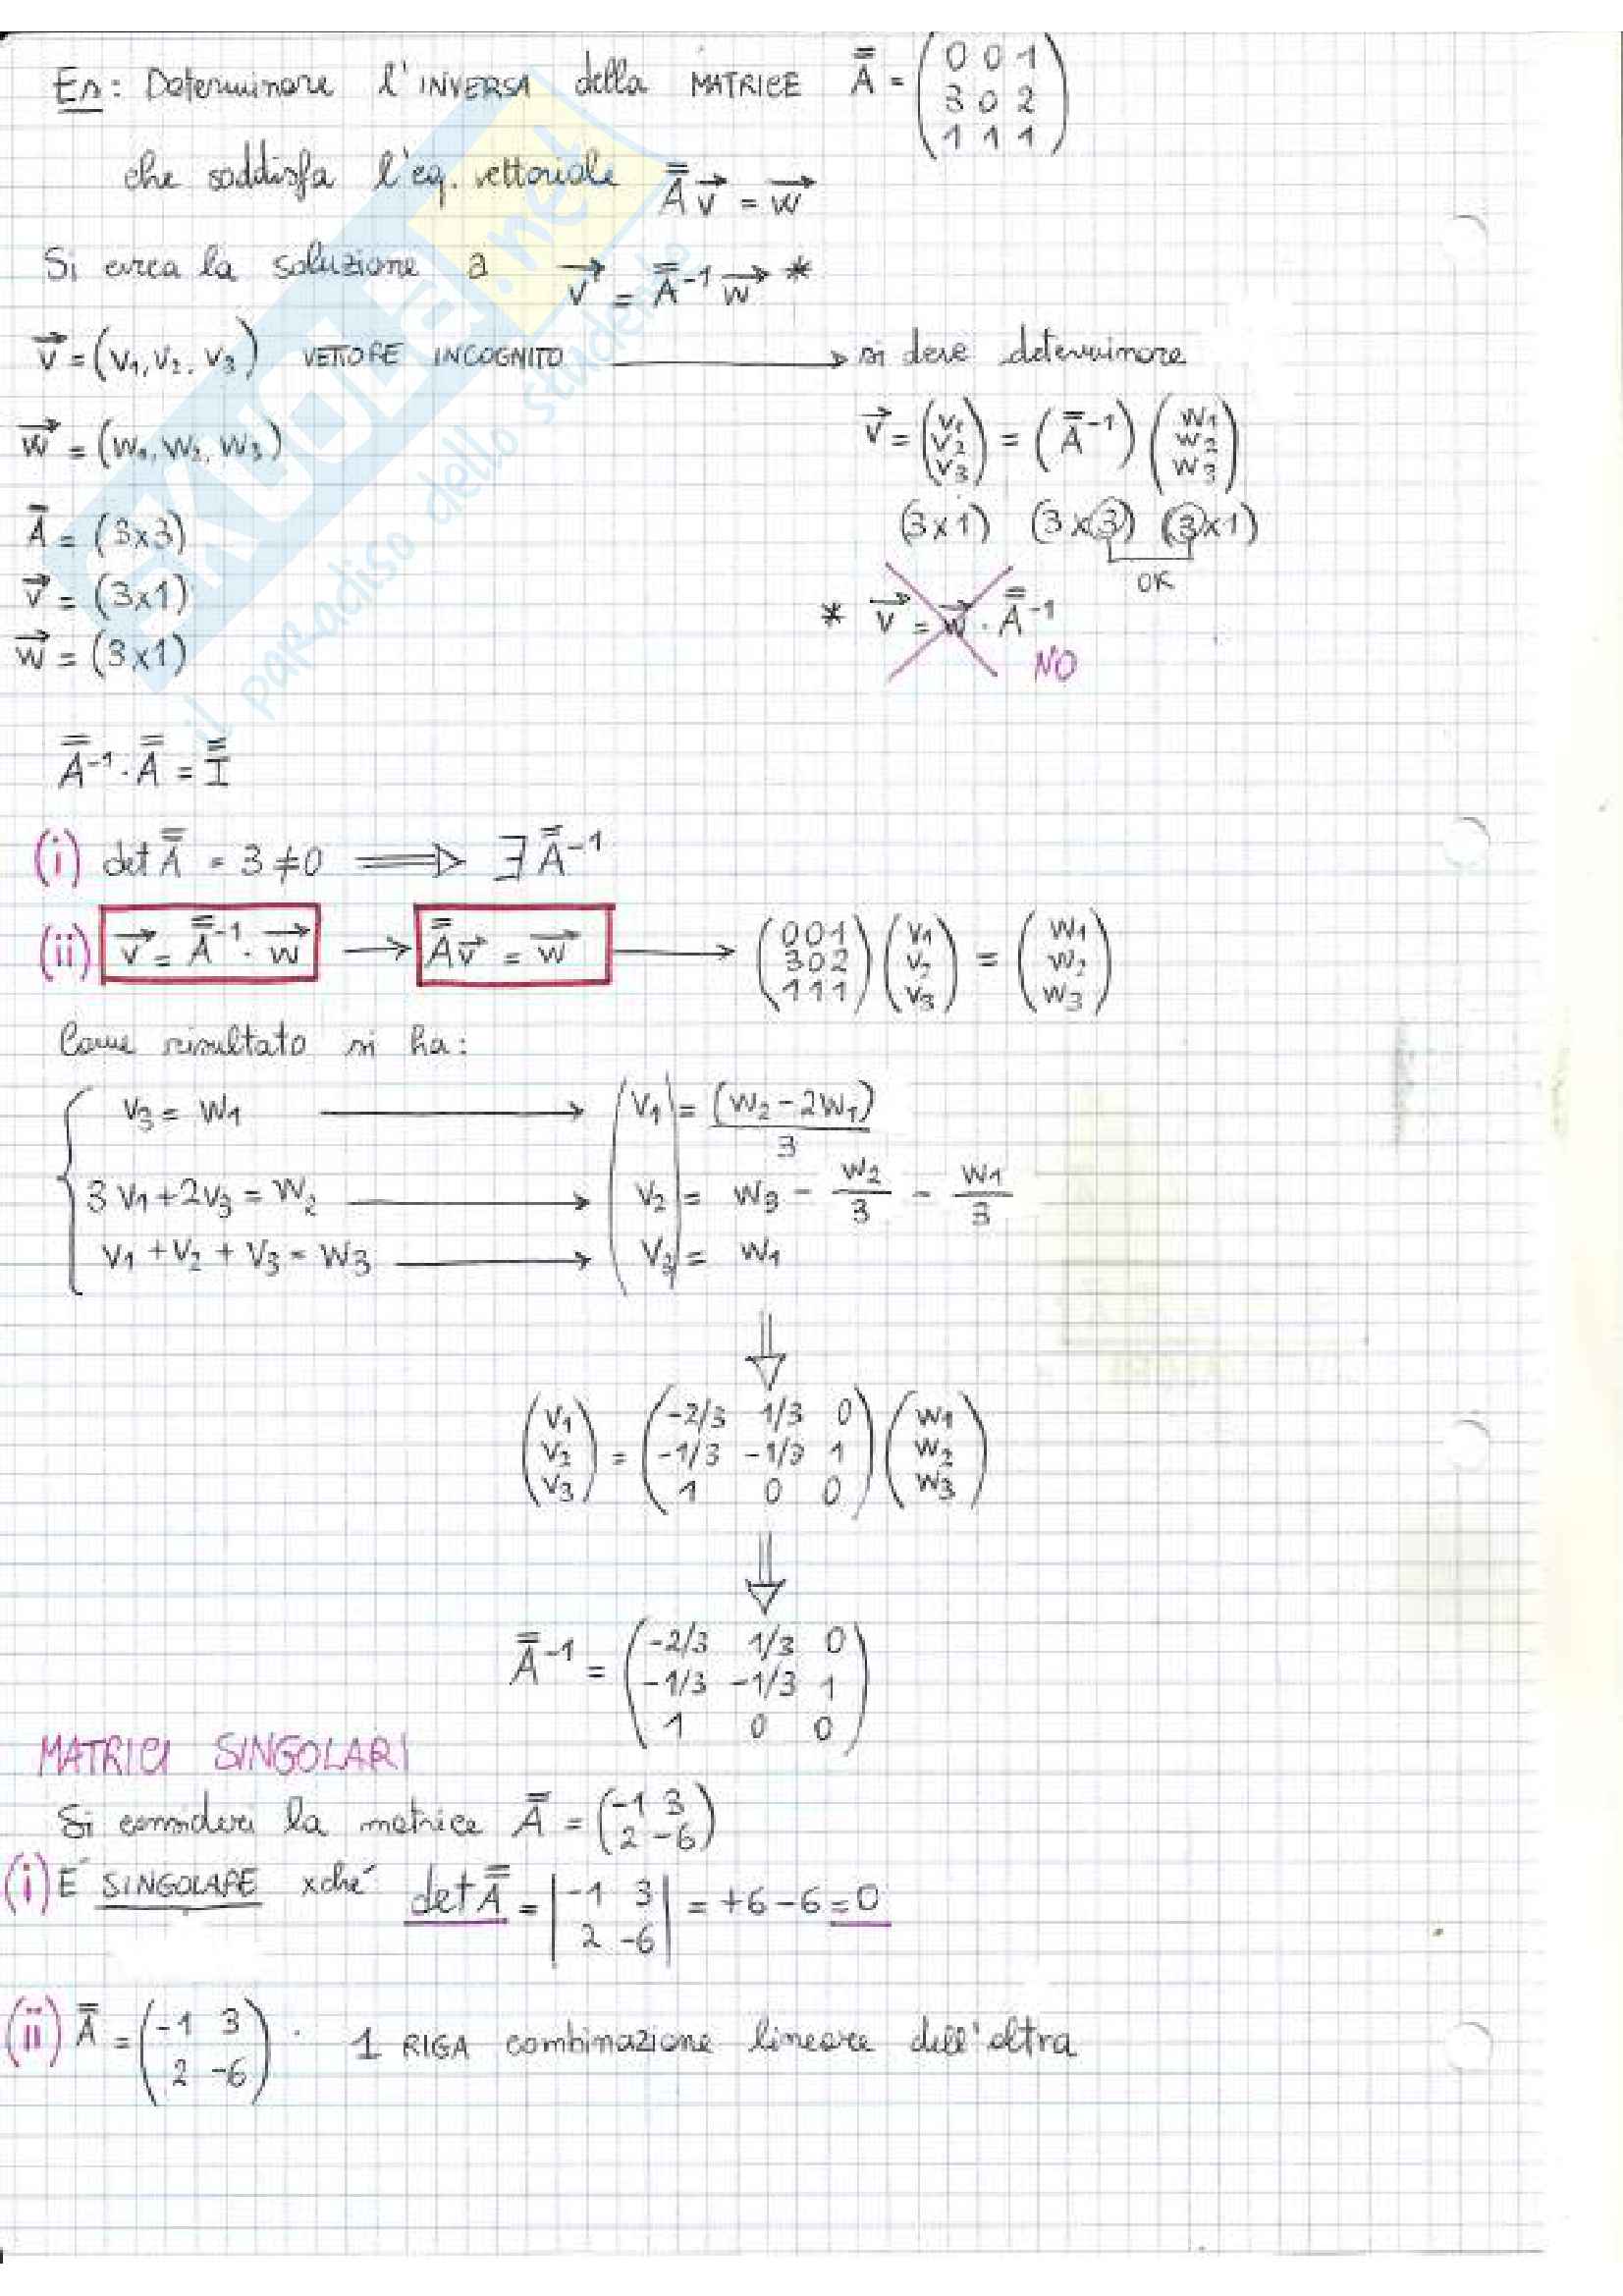 Es: Determinare l'INVERSA della MATRICE A̿ = (0 0 1 / 3 0 2 / 1 1 1)
che soddisfa l'eq. vettoriale A̿ v⃗ = w⃗
Si cerca la soluzione a v⃗ = A̿⁻¹ w⃗ *
v⃗ = (v₁, v₂, v₃) VETTORE INCOGNITO → si deve determinare
w⃗ = (w₁, w₂, w₃)
v⃗ = (v₁ / v₂ / v₃) = (A̿⁻¹) (w₁ / w₂ / w₃)
(3x1) (3x3) (3x1)
OK
A̿ = (3x3)
v⃗ = (3x1)
w⃗ = (3x1)
* v⃗ = w⃗ · A̿⁻¹
NO
A̿⁻¹ · A̿ = I̿
(i) det A̿ = 3 ≠ 0 ⟹ ∃ A̿⁻¹
(ii) v⃗ = A̿⁻¹ · w⃗ → A̿ v⃗ = w⃗ → (0 0 1 / 3 0 2 / 1 1 1) (v₁ / v₂ / v₃) = (w₁ / w₂ / w₃)
Come risultato si ha:
v₃ = w₁ → v₁ = (w₂ - 2w₁)/3
3v₁ + 2v₃ = w₂ → v₂ = w₃ - w₂/3 - w₁/3
v₁ + v₂ + v₃ = w₃ → v₃ = w₁
⇓
(v₁ / v₂ / v₃) = (-2/3 1/3 0 / -1/3 -1/3 1 / 1 0 0) (w₁ / w₂ / w₃)
⇓
A̿⁻¹ = (-2/3 1/3 0 / -1/3 -1/3 1 / 1 0 0)
MATRICI SINGOLARI
Si consideri la matrice A̿ = (-1 3 / 2 -6)
(i) E' SINGOLARE xché det A̿ = |-1 3 / 2 -6| = +6 - 6 = 0
(ii) A̿ = (-1 3 / 2 -6) . 1 RIGA combinazione lineare dell'altra
SKUOLA.net
il paradiso dello studente